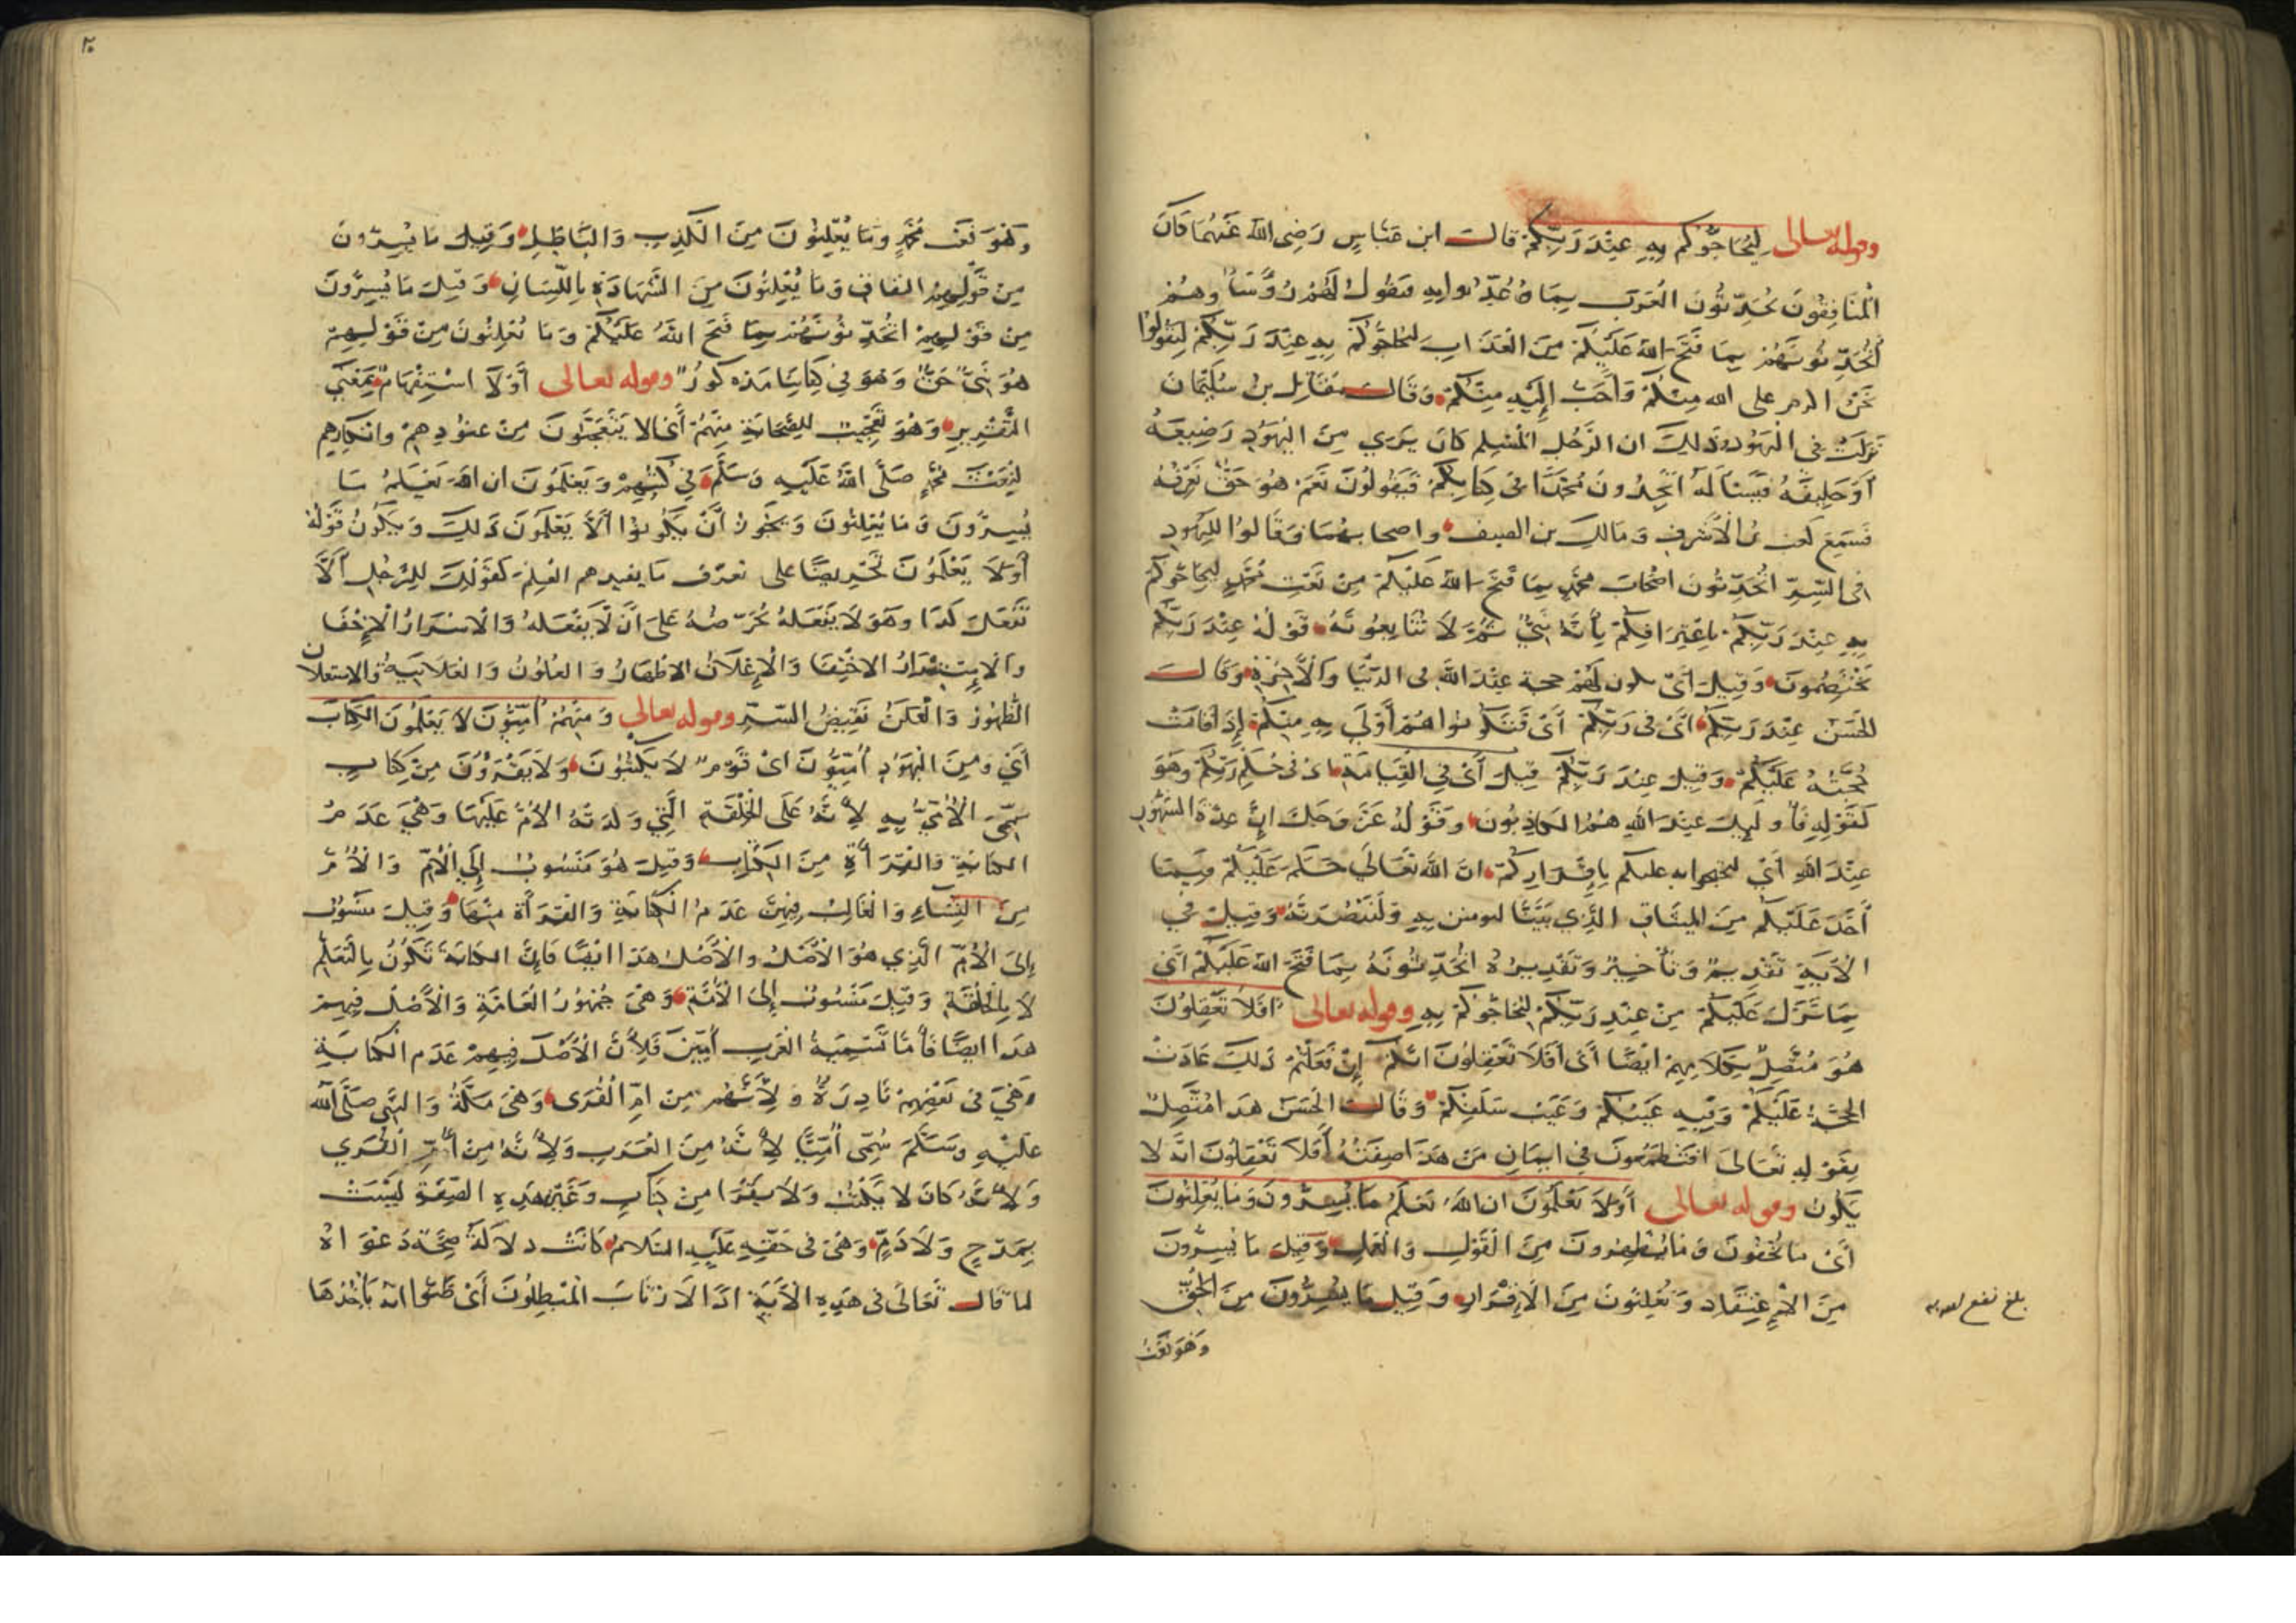 وقوله تعالى ليحاجوكم به عند ربكم قال ابن عباس رضي الله عنهما كان
المنافقون يحدثون العرب بما عذبوا به فتقول لهم رؤساؤهم
أتحدثونهم بما فتح الله عليكم من العذاب ليحاجوكم به عند ربكم ليقولوا
نحن اكرم على الله منكم وأحب إليه منكم وقال مقاتل بن سليمان
نزلت في اليهود وذلك ان الرجل المسلم كان يرى من اليهود رضيعه
أو حليفه فيسأله أتجدون محمدا في كتابكم فيقولون نعم هو حق نعرفه
فسمع كعب بن الأشرف ومالك بن الصيف واصحابهما وقالوا لليهود
في السر أتحدثون اصحاب محمد بما فتح الله عليكم من نعت محمد ليحاجوكم
به عند ربكم باعترافكم بأنه نبي ثم لا تتابعونه قوله عند ربكم
تختصمون وقيل اي يكون لهم حجة عند الله في الدنيا والآخرة وقال
الحسن عند ربكم اي في ربكم أي فتكونوا هم أولى به منكم إذا قامت
حجته عليكم وقيل عند ربكم قيل أي في القيامة اي في حكم ربكم وهو
كقوله فأولئك عند الله هم الكاذبون وقوله عز وجل إن عدة الشهور
عند الله أي ليحتجوا به عليكم بإقراركم ان الله تعالى حكم عليكم وفيما
أخذ عليكم من الميثاق الذي بيننا لتومنن به ولتنصرنه وقيل في
الآية تقديم وتأخير وتقديره أتحدثونه بما فتح الله عليكم أي
بما نزل عليكم من عند ربكم ليحاجوكم به وقوله تعالى أفلا تعقلون
هو متصل بكلامهم ايضا أي أفلا تعقلون انكم إن فعلتم ذلك عادت
الحجة عليكم وفيه عيبكم وعيب سلفكم وقال الحسن هذا متصل
بقوله تعالى افتطمعون في ايمان من هذا صفته أفلا تعقلون انه لا
يكون وقوله تعالى أولا يعلمون ان الله يعلم ما يسرون وما يعلنون
أي ما تخفون وما يظهرون من القول والعمل وقيل ما يسرون
من الاعتقاد ويعلنون من الإقرار وقيل ما يسرون من الحق
وهو نعت
بلغ
وهو نعت محمد وما يعلنون من الكذب والباطل وقيل ما يسرون
من قولهم النفاق وما يعلنون من الشهادة باللسان وقيل ما يسرون
من قولهم أتحدثونهم بما فتح الله عليكم وما يعلنون من قولهم
هو نبي حق وهو في كتابنا مذكور وقوله تعالى أولا استفهام بمعنى
التقرير وهو تعجيب للصحابة منهم أي الا يتعجبون من عنودهم وانكارهم
لنعت محمد صلى الله عليه وسلم في كتبهم ويعلمون ان الله يعلم ما
يسرون وما يعلنون ويجوز أن يكونوا ألا يعلمون ذلك ويكون قوله
أولا يعلمون تحريضا على تعرف ما يفيدهم العلم كقولك للرجل ألا
تفعل كذا وهو لا يفعله تحرضه على أن لا يفعله والاسرار الإخفا
والاستسرار الاختفا والإعلان الاظهار والعلون والعلانية والاستعلان
الظهور والعلن نقيض السر وقوله تعالى ومنهم أميون لا يعلمون الكتاب
أي ومن اليهود أميون اي قوم لا يكتبون ولا يقرؤن من كتاب
سمي الأمي به لأنه على الخلقة التي ولدته الأم عليها وهي عدم
الكتابة والقراءة من الكتاب وقيل هو منسوب إلى الأم والأم
من النساء والغالب فيهن عدم الكتابة والقراءة منها وقيل منسوب
إلى الأم الذي هو الأصل والأصل هذا ايضا فإن الكتابة تكون بالتعلم
لا بالخلقة وقيل منسوب إلى الأمة وهي جمهور العامة والأصل فيهم
هذا ايضا فأما تسمية العرب أميين فلأن الأصل فيهم عدم الكتابة
وهي في بعضهم نادرة ولأنهم من ام القرى وهي مكة والنبي صلى الله
عليه وسلم سمي أميا لأنه من العرب ولأنه من أم القرى
ولأنه كان لا يكتب ولا يقرأ من كتاب وغير هذه الصفة ليست
بمدح ولا ذم وهي في حقه عليه السلام كانت دلالة صحة دعواه
لما قال تعالى في هذه الآية اذا لارتاب المبطلون أي ظنوا انه يأخذها
٢٠